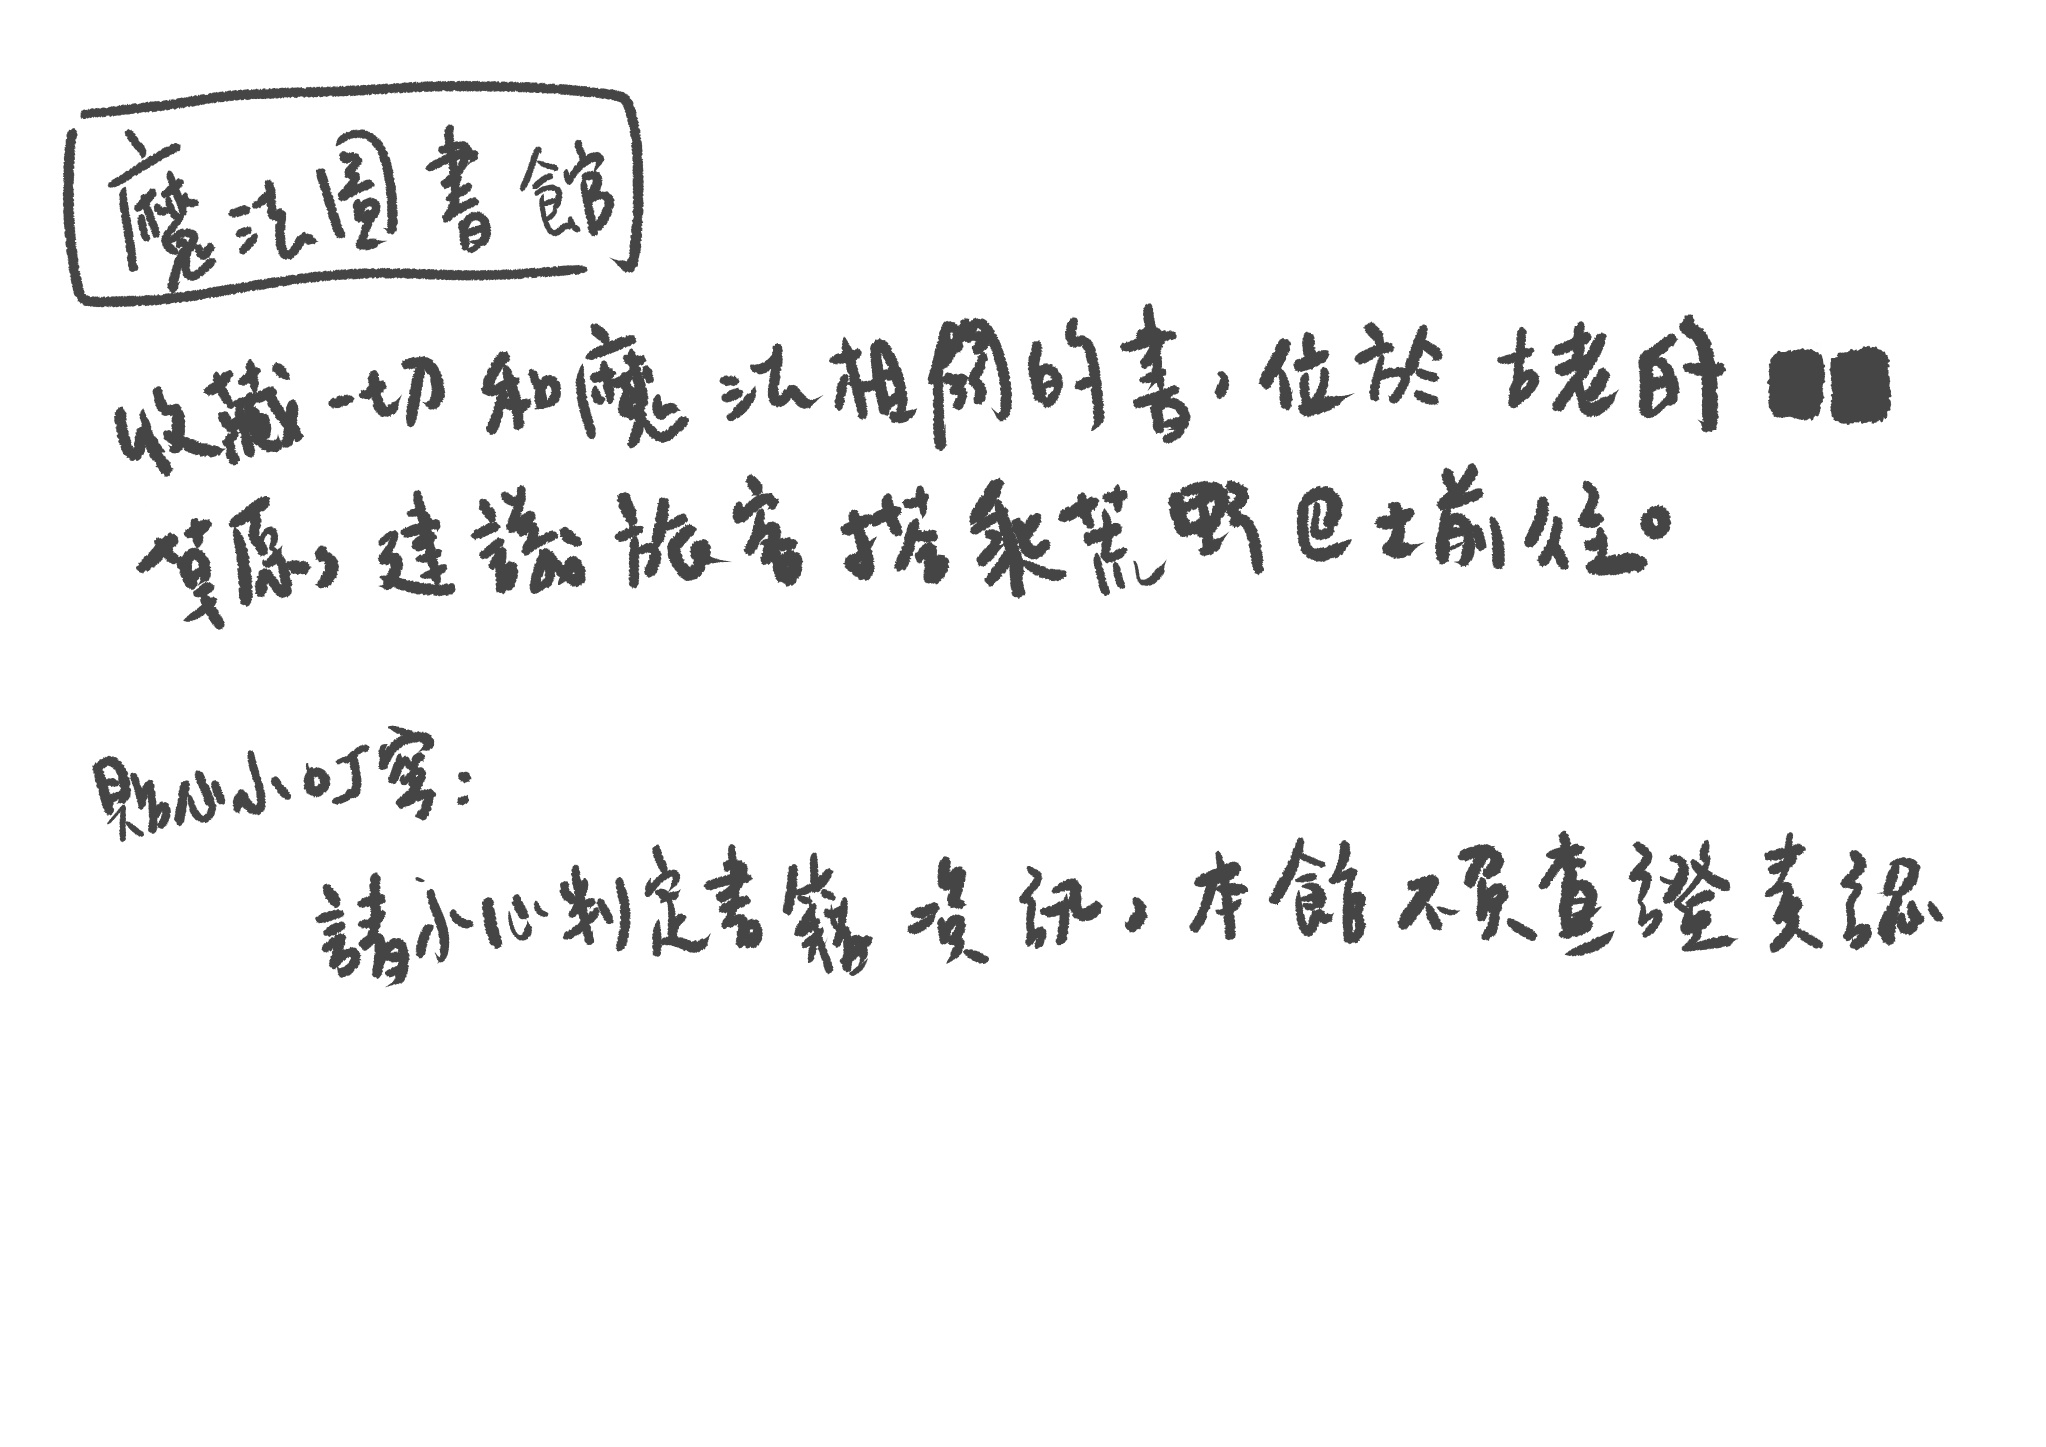 魔法圖書館
收藏一切和魔法相關的書，位於古老的■■
草原，建議旅客搭乘荒野巴士前往。
貼心小叮嚀：
請小心判定書籍資訊，本館不負查證責認